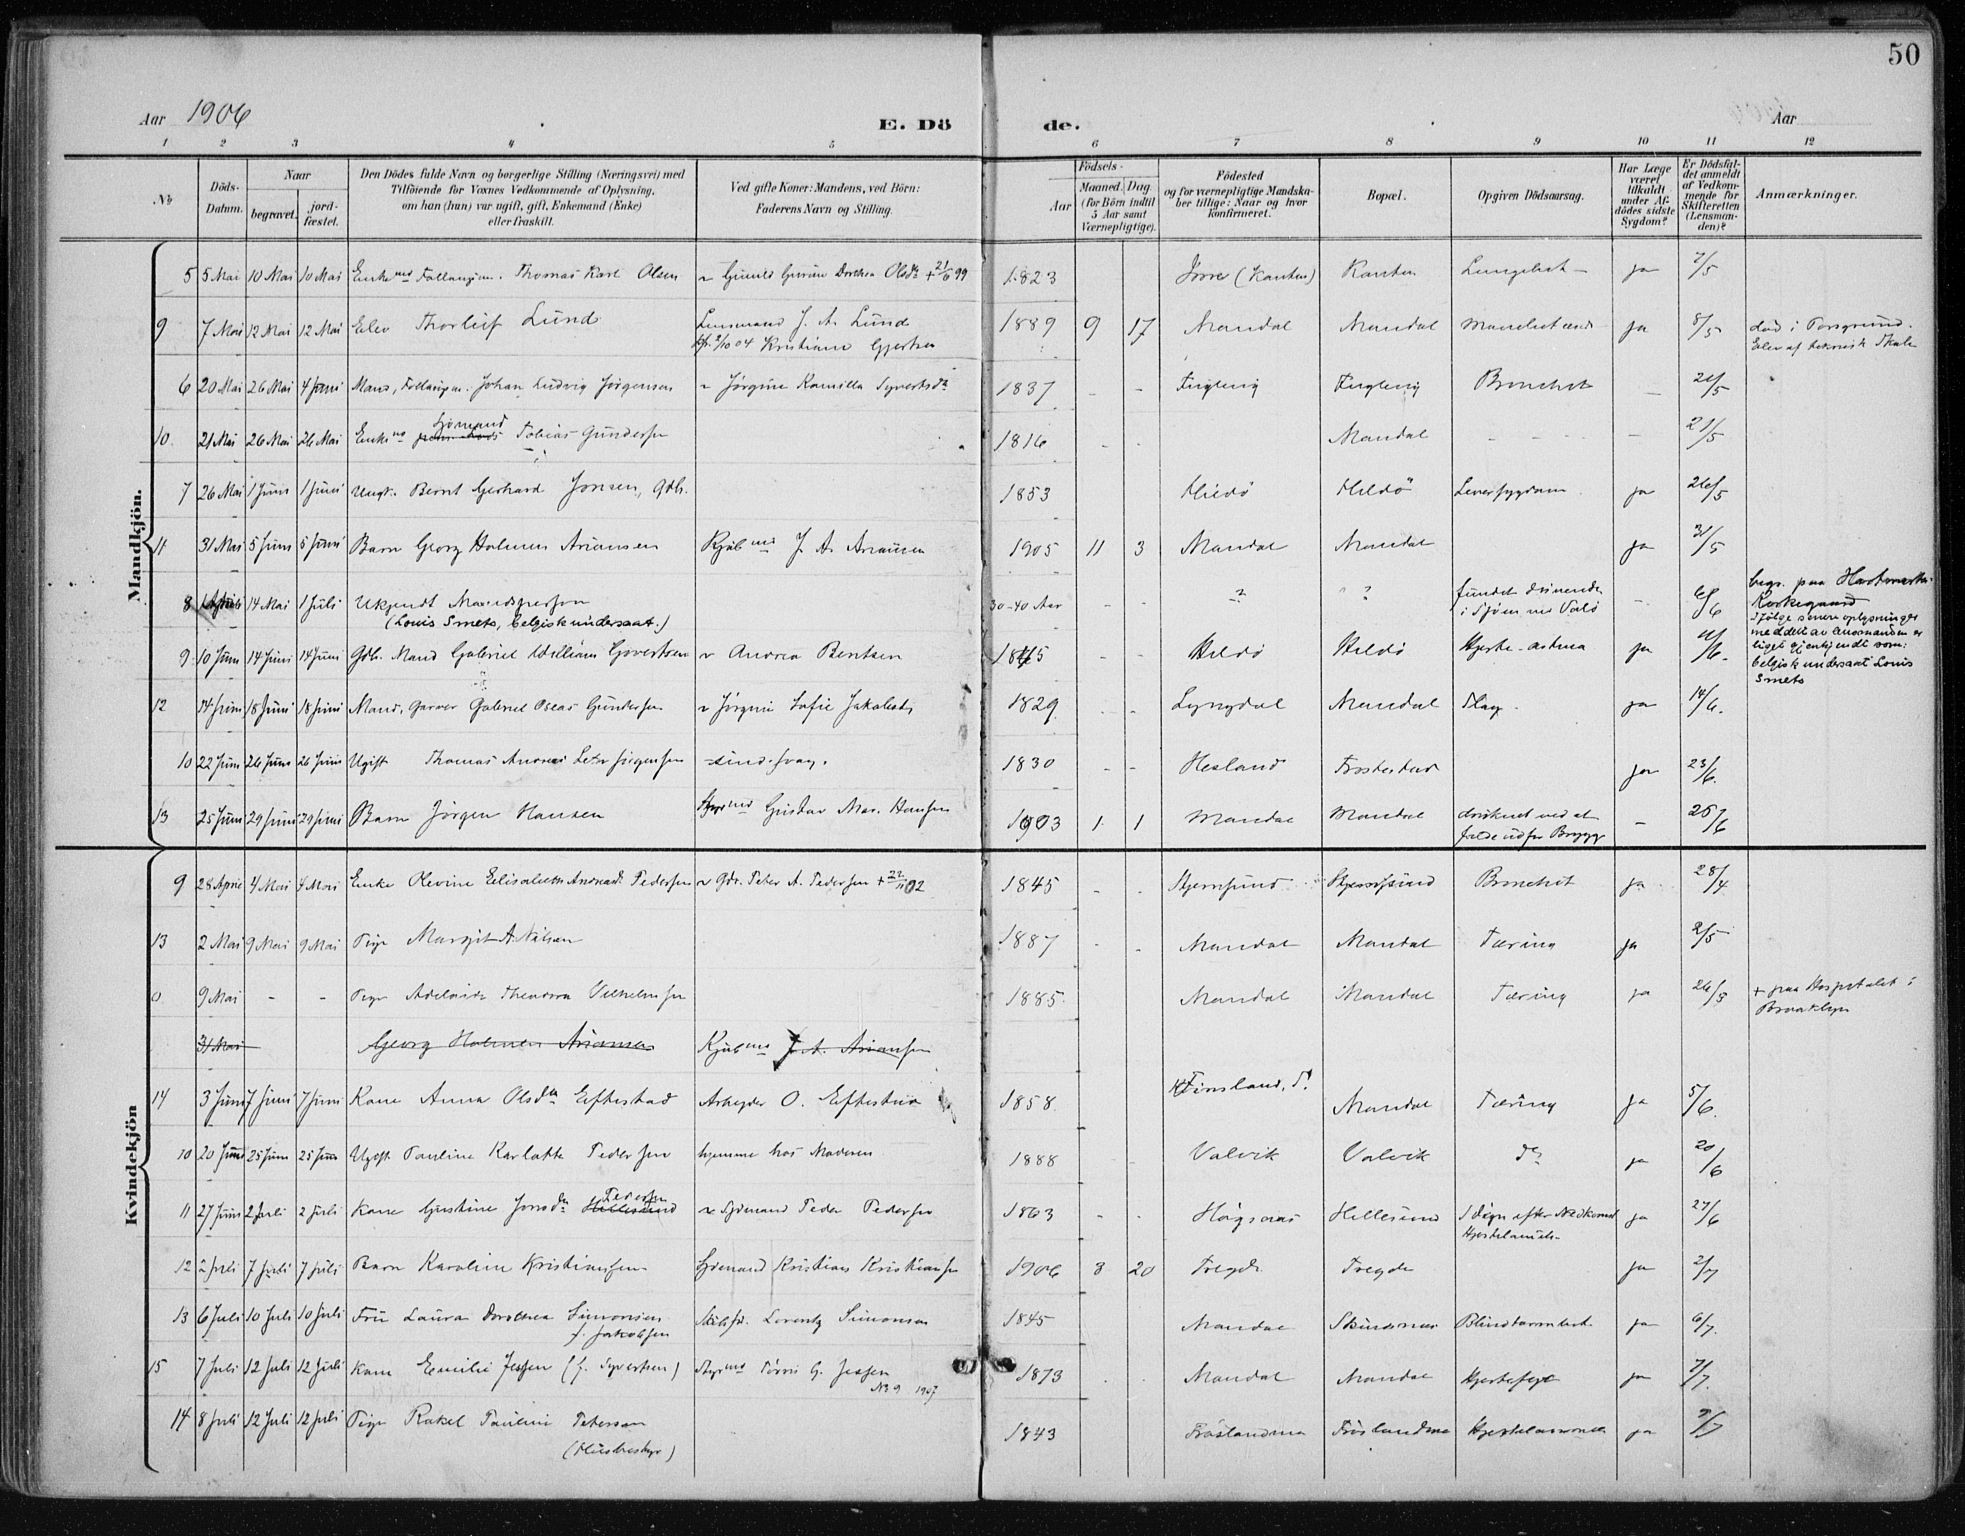 50
Aar 1906 E. Dö de. Aar
1 2 3 4 5 6 7 8 9 10 11 12
No
Döds-Datum.
Naar
begravet.
jord-fæstet.
Den Dödes fulde Navn og borgerlige Stilling (Næringsvei) med
Tilföiende for Voxnes Vedkommende af Oplysning,
om han (hun) var ugift, gift, Enkemand (Enke)
eller fraskilt.
Ved gifte Koner: Mandens, ved Börn:
Faderens Navn og Stilling.
Födsels-
Aar
Maaned. Dag
(for Börn indtil
5 Aar samt
Værnepligtige).
Födested
og for værnepligtige Mandska-
ber tillige: Naar og hvor
konfirmeret.
Bopæl.
Opgiven Dödsaarsag.
Har Læge
været
tilkaldt
under Af-
dödes sidste
Sygdom?
Er Dödsfal-
det anmeldt
af Vedkom-
mende for
Skifteretten
(Lensman-
den)?
Anmærkninger.
Mandkjön.
5 5 Mai 10 Mai 10 Mai Thomas Karl Olsen 1823 (Kanten) Kanten ja 7/5
9 7 Mai 12 Mai 12 Mai Elev Thorleif Lund Lensmand J. A. Lund 1889 9 17 Mandal Mandal ja 8/5 død i Porsgrund.
Kristiane Gjertsen Elev af teknisk Skole
6 20 Mai 26 Mai 4 Juni Mand, Johan Ludvig Jørgensen Jørgine Kamilla Syvertsdr 1837 - - Bronchit -
10. 21 Mai 26 Mai 26 Mai Sjømand Tobias Gundersen 1816 - - Mandal - 21/5
7 26 Mai 1 Juni 1 Juni Ungk. Bernt Gerhard Jonsen, Gdb. 1853 Hildø Hildø Leversygdom ja 26/5
11 31 Mai 5 Juni 5 Juni Barn Georg Holmen Ariansen Kjøbmd J. A. Ariansen 1905 11 3 Mandal Mandal ja 31/5
8 14 Mai 1 Juli Ukjendt Mandsperson 30-40 Aar - - ? ? fundet drivende - begr. paa
(Louis Smets, belgisk undersaat.) i Sjøen Kirkegaard
Ifølge senere oplysninger
meddelt av lensmanden er
liget gjenkjendt som:
belgisk undersaat Louis
Smets
9 10 Juni 14 Juni 14 Juni Gdb. Mand Gabriel William Govertsen Andrea Bentsen 1845 - - Hildø Hildø Hjerte-astma ja
12 14 Juni 18 Juni 18 Juni Mand, Garver Gabriel Oseas Gundersen Jørgine Sofie Jakobsdr 1829 - - Lyngdal Mandal Slag. ja 14/6.
10 22 Juni 26 Juni 26 Juni Ugift Thomas Andreas sindssvag. 1830 - - Hesland Frostestad ja 23/6.
13 25 Juni 29 Juni 29 Juni Barn Jørgen Hansen Gustav Mar. Hansen 1903 1. 1 Mandal Mandal druknet ved at - 25/6
falde ud for Brygge
Kvindekjön
9 28 April 4 Mai 4 Mai Enke Olevine Elisabeth Andreasdr Pedersen Gdr. Peter A. Pedersen + 22/11 02 1845 - - Stjernsund Stjernsund Bronchit ja 28/4
13 2 Mai 9 Mai 9 Mai Pige Margit A. Nilsen 1887 - - Mandal Mandal Tæring ja 2/5
9 Mai - - Pige Adelaide Theodora Vilhelmsen 1885 Mandal Mandal Tæring ja 26/5 + paa Hospitalet i
Brooklyn
31 Mai Georg Holmen Ariansen Kjøbmd J. A. Ariansen
14 3 Juni 7 Juni 7 Juni Kone Anna Olsdtr Eftestad Arbeyder O. Eftestad 1858 Finsland, Mandal Tæring ja 5/6.
10 20 Juni 25 Juni 25 Juni Ugift Pauline Karlotte Pedersen hjemme hos Moderen 1888 Valvik Valvik do ja 20/6
11 27 Juni 2 Juli 2 Juli Kone Gustine Jonsdr Hillesund Pedersen Sjømand Peder Pedersen 1863 - - Høgsnes Hillesund ja 27/6
12 2 Juli 7 Juli 7 Juli Barn Karoline Kristiansen Sjømand Kristian Kristiansen 1906 3 20 Tregde Tregde ja 2/7
13 6 Juli 10 Juli 10 Juli Fru Laura Dorothea Simonsen Skibsf. Lorentz Simonsen 1845 Mandal Blindtarmbet. ja 6/7.
f. Jakobsen
15 7 Juli 12 Juli 12 Juli Kone Emilie Jessen (f. Syvertsen) Styrmd Tørres G. Jessen 1873 Mandal Mandal Hjertefeil ja 7/7.
No 9 1907
14 8 Juli 12 Juli 12 Juli Pige Rakel Pauline Petersen 1843 Frøslandsmo Frøslandsmo ja 9/7
(Husbestyr)